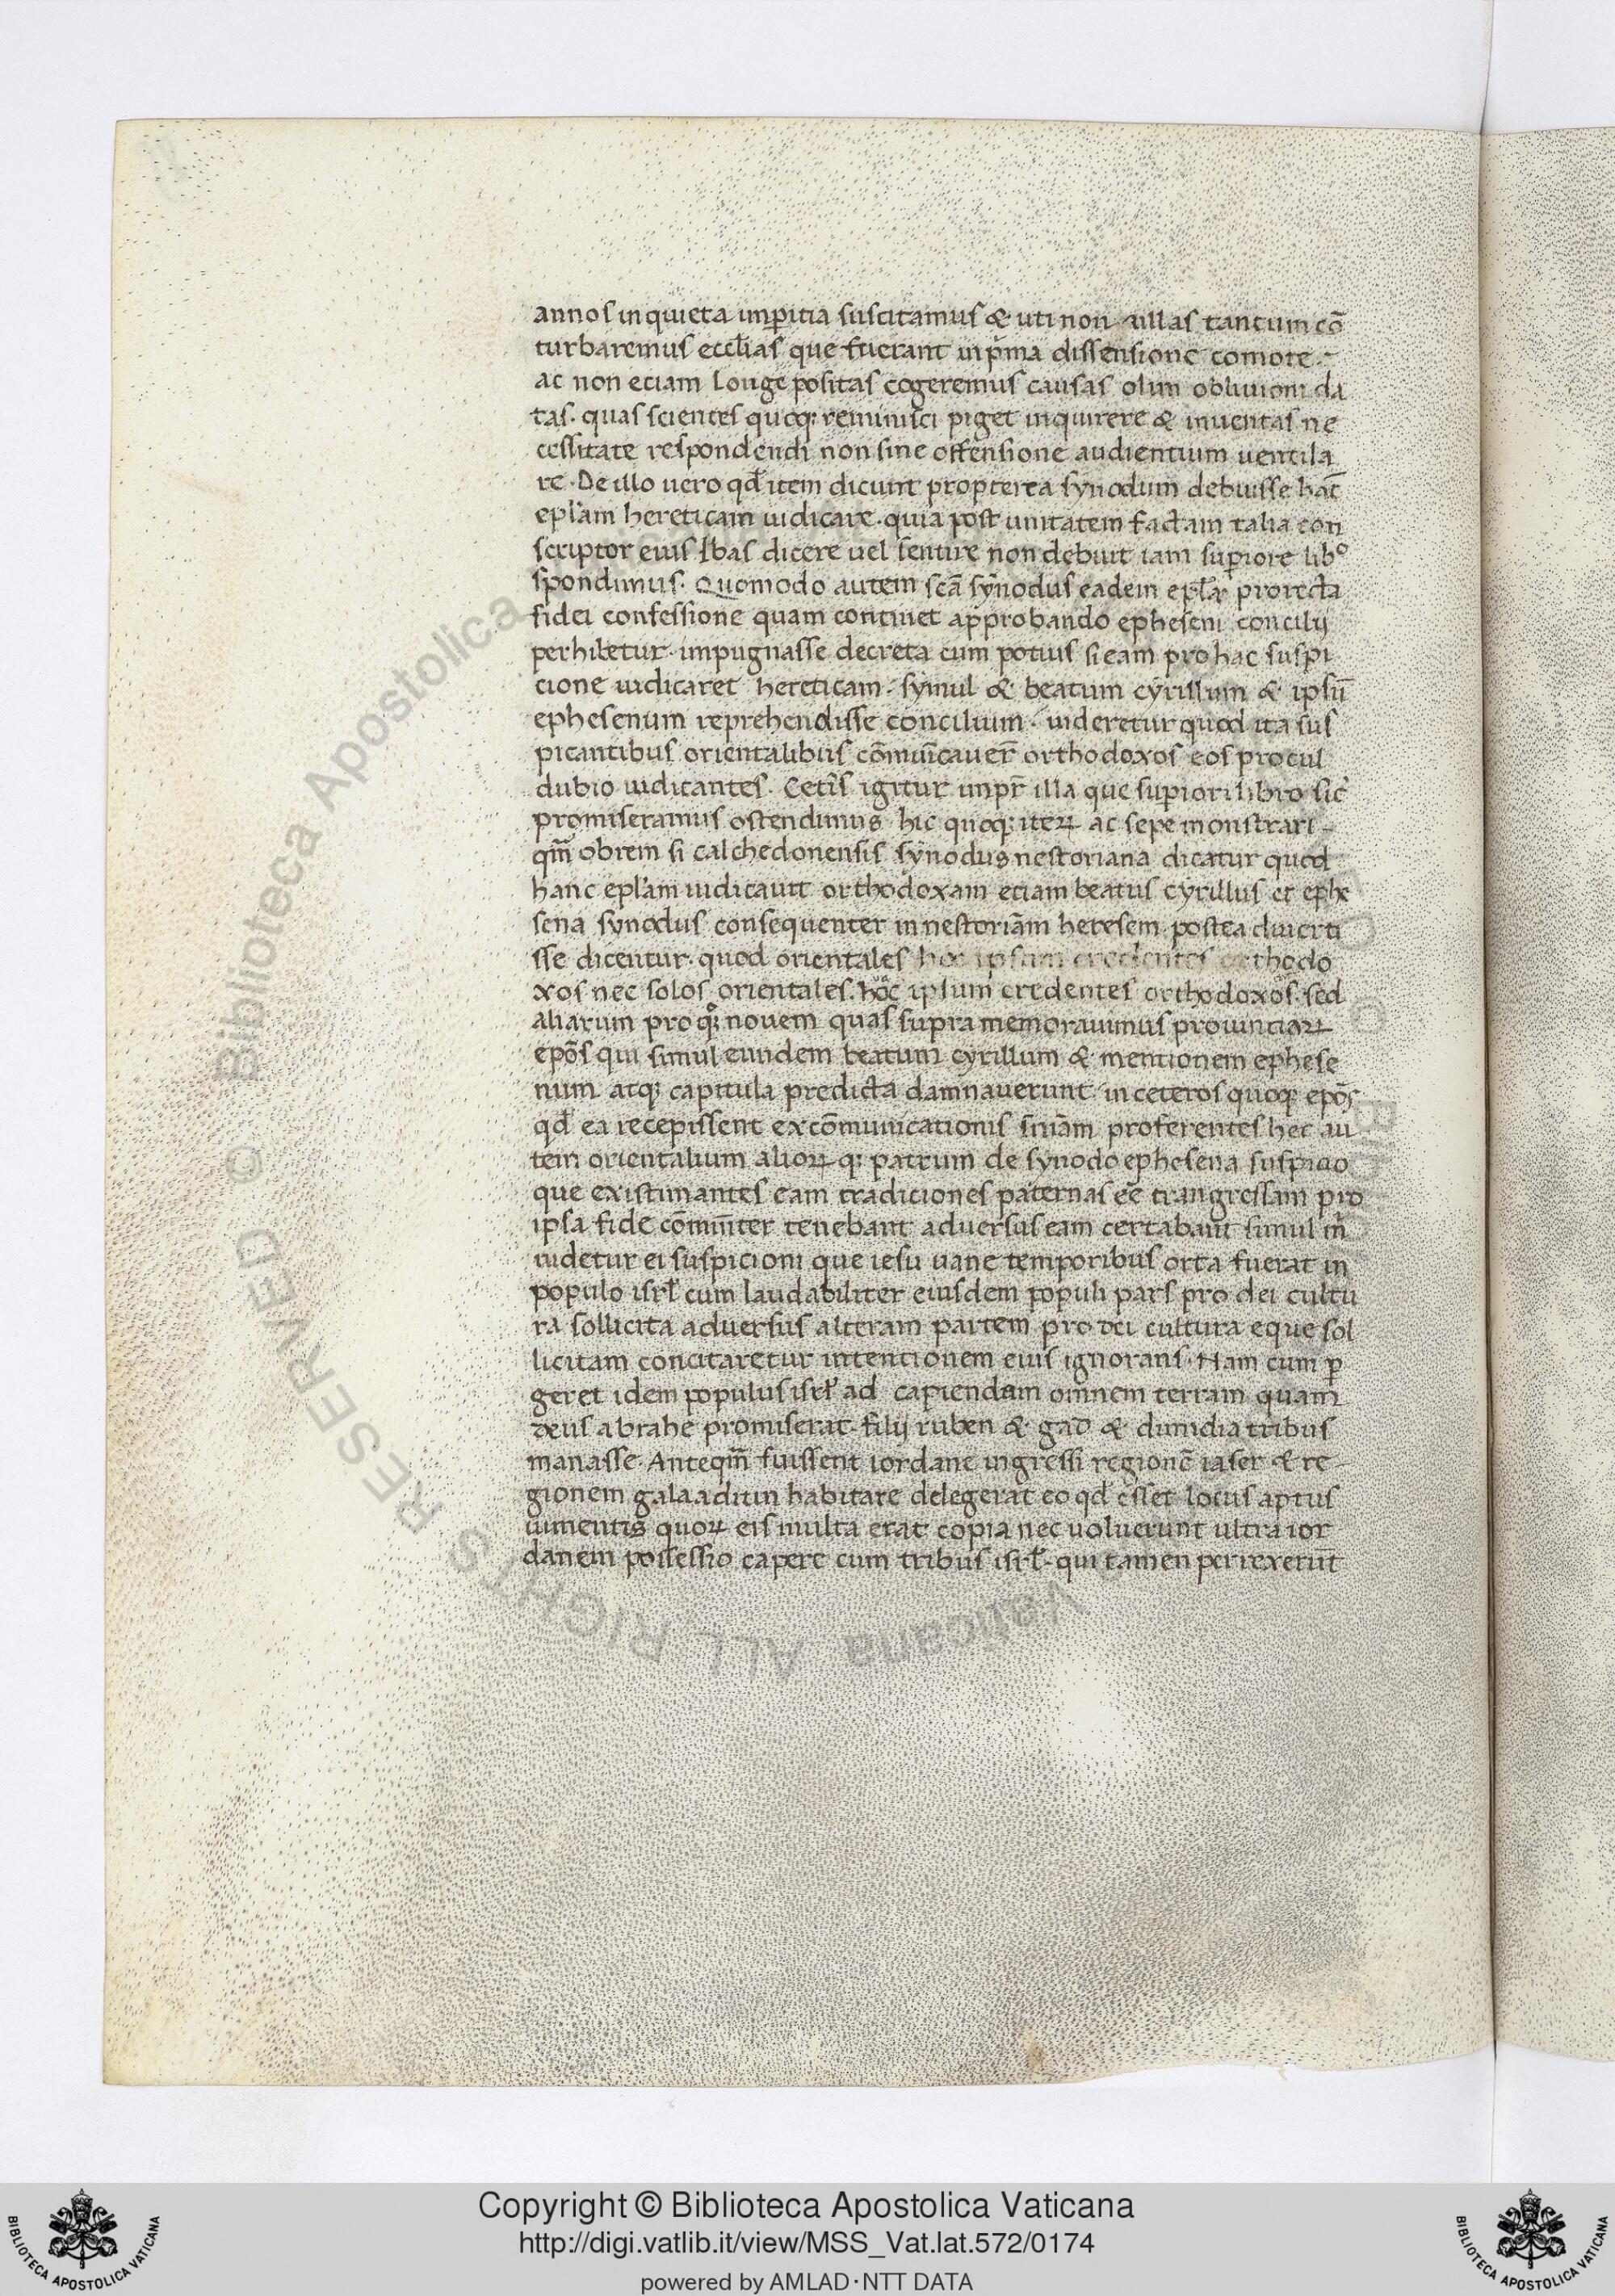 annos inquieta imꝑitia suscitamus & uti non nullas tantum cō
turbaremus eccl̄ias que fuerant in pͥma dissensione comote
ac non eciam longe positas cogeremus causas olim obliuioni da
tas. quas scientes quoqꝫ reminisci piget inquirere & inuentas ne
cessitate respondendi non sine offensione audientium uentila
re. De illo uero qd̄ item dicunt propterea synodum debuisse hāc
epl̄am hereticam iudicare. quia post unitatem factam talia con
scriptor eius Ibas dicere uel sentire non debuit iam suꝑiore libᵒ
spondimus. Quomodo autem scā synodus eadem epl̄a pro recta
fidei confessione quam continet approbando epheseni concilij
perhibetur impugnasse decreta cum potius si eam pro hac suspi
cione iudicaret hereticam. symul & beatum cyrillum & ipsū
ephesenum reprehendisse concilium. uideretur quod ita sus
picantibus orientalibus cōmunicauer̄ orthodoxos eos procul
dubio iudicantes. Cetīs igitur impr̄ illa que suꝑiori libro sic̄
promiseramus ostendimus hic quoqꝫ iteꝝ ac sepe monstrari
qm̄ obrem si calchedonensis synodus nestoriana dicatur quod
hanc epl̄am iudicauit orthodoxam eciam beatus cyrillus et ephe
sena synodus consequenter in nestoriām heresem postea diuerti
sse dicentur. quod orientales hoc ipsum credentes orthodo
xos nec solos orientales. hoc ipsum credentes orthodoxos. sed
aliarum proqꝫ nouem quas supra memorauimus prouinciaꝝ
epōs qui simul eundem beatum cyrillum & mentionem ephese
num atqꝫ capitula predicta damnauerunt. in ceteros quoqꝫ epōs
qd̄ ea recepissent excōmunicationis sn̄iām proferentes hec au
tem orientalium alioꝝ qꝫ patrum de synodo ephesena suspicio
que existimantes eam tradiciones paternas eē trangressam pro
ipsa fide cōmun̄ter tenebant aduersus eam certabant simul m̄
uidetur ei suspicioni que iesu naue temporibus orta fuerat in
populo isrl̄ cum laudabiliter eiusdem populi pars pro dei cultu
ra sollicita aduersus alteram partem pro dei cultura eque sol
licitam concitaretur intentionem eius ignorans. Nam cum ꝑ
geret idem populus isrl̄ ad capiendam omnem terram quam
deus abrahe promiserat. filij ruben & gad & dimidia tribus
manasse. Anteqm̄ fuissent iordane ingressi regionē iaser & re
gionem galaaditin habitare delegerat eo qd̄ esset locus aptus
iumentis quoꝝ eis multa erat copia nec uoluerunt ultra ior
danem possessio capere cum tribus isrl̄. qui tamen perrexerūt
Copyright © Biblioteca Apostolica Vaticana
http://digi.vatlib.it/view/MSS_Vat.lat.572/0174
powered by AMLAD·NTT DATA
BIBLIOTECA APOSTOLICA VATICANA
BIBLIOTECA APOSTOLICA VATICANA